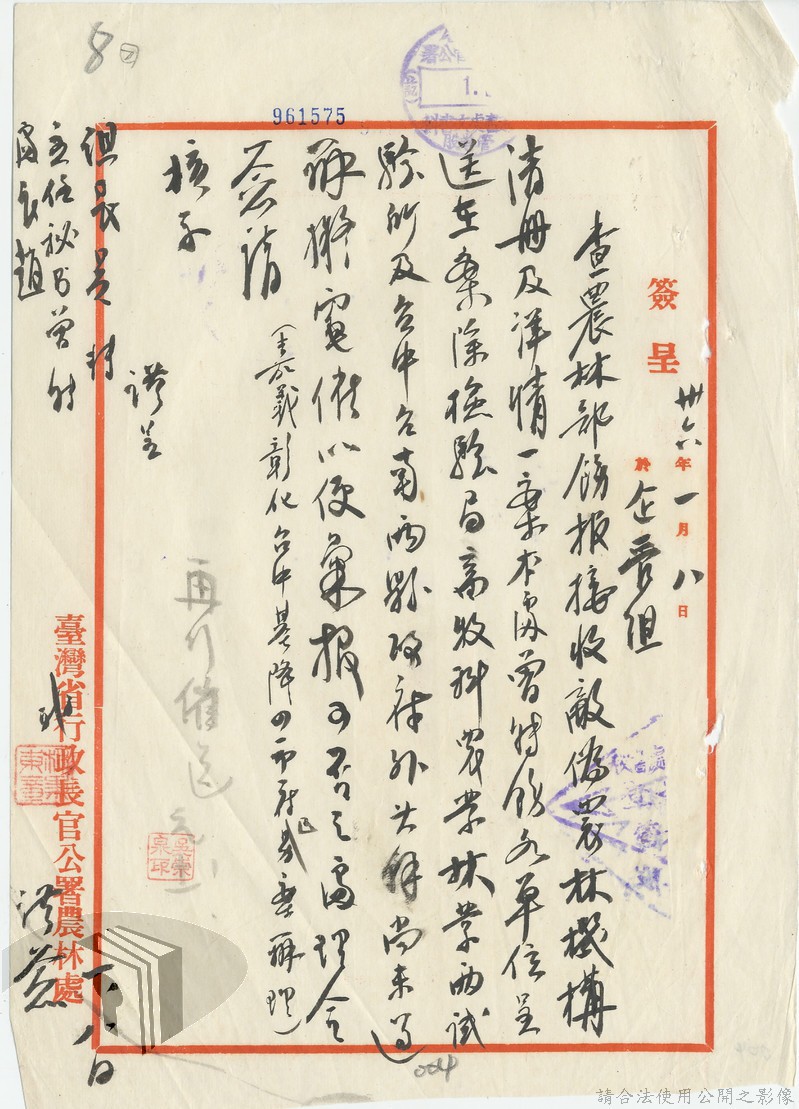 8
961575
簽呈
卅六年一月八日
於企寄組
查農林部飭报接收敵偽農林機構
清册及詳情一案本處曾转飭各单位呈
送在案除檢驗局畜牧科農業林業两試
驗所及台中台南两縣政府外其餘尚未過
擬電催以便彙报可否之處理合
簽請
核示
(嘉義彰化台中基隆四市府
再行催送
組長吴
主任秘书曾
處長趙
臺灣省行政長官公署農林處
一、八日
004
請合法使用公開之影像